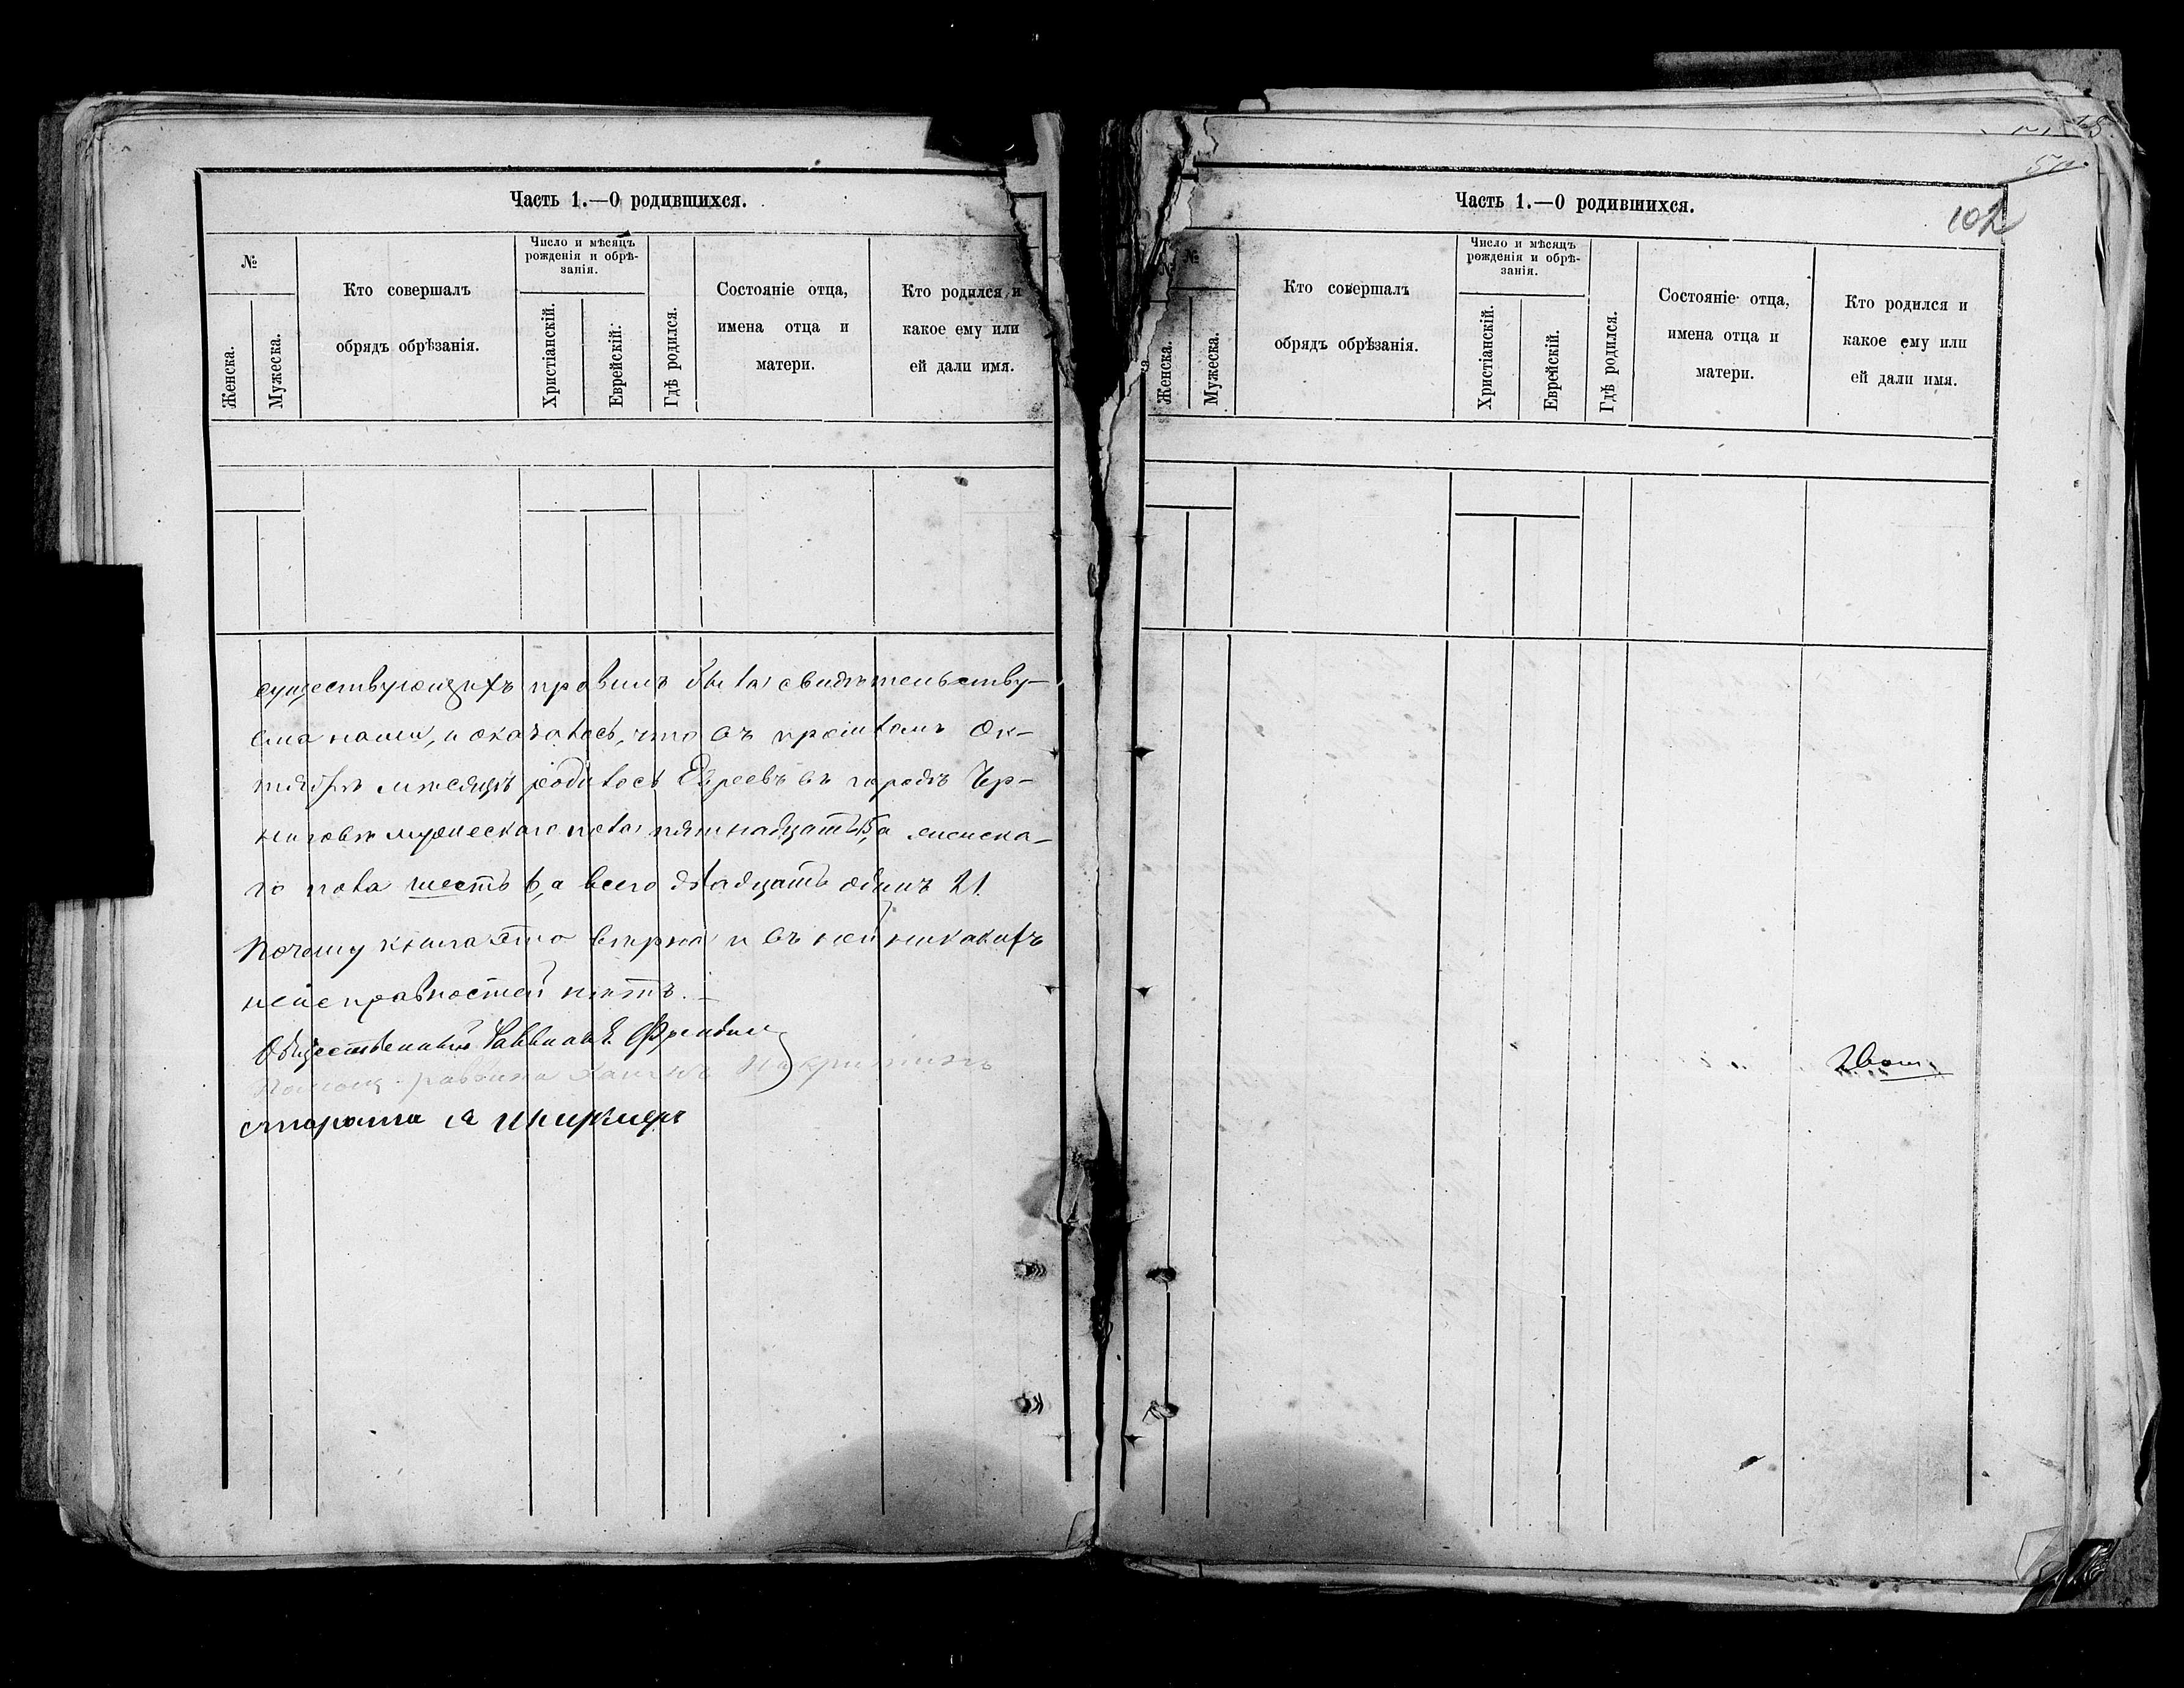 Часть 1.—О родившихся.
№
Женска.
Мужеска.
Кто совершалъ
обрядъ обрѣзанія.
Число и мѣсяцъ
рожденія и обрѣ-
занія.
Христіанскій.
Еврейскій.
Гдѣ родился.
Состояніе отца,
имена отца и
матери.
Кто родился и
какое ему или
ей дали имя.
существующихъ правилъ была свидѣтельству-
ема нами, и оказалось, что въ прошломъ Ок-
тябрѣ мѣсяцѣ родилось Евреевъ въ городѣ Чер-
ниговѣ мужескаго пола пятнадцать 15, а женска-
го пола шесть 6, а всего двадцать одинъ 21.
Почему книга эта вѣрна и въ ней никакихъ
неисправностей нѣтъ.—
Общественный Раввинъ
Помощ. раввина
староста
Часть 1.—О родившихся.
102
№
Женска.
Мужеска.
Кто совершалъ
обрядъ обрѣзанія.
Число и мѣсяцъ
рожденія и обрѣ-
занія.
Христіанскій.
Еврейскій.
Гдѣ родился.
Состояніе отца,
имена отца и
матери.
Кто родился и
какое ему или
ей дали имя.